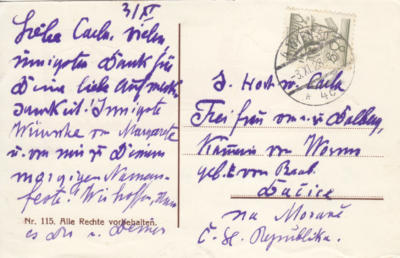 3/XI
Liebe Carla, vielen
innigsten Dank für
Deine liebe Aufmerk-
samkeit! Innigste
Wünsche von Margarete
u. von mir zu Deinem
morgigen Namens-
feste. Wir hoffen, dass
es Dir u. Deinen
Nr. 115. Alle Rechte vorbehalten.
I. Hochw. Carla
Freifrau von u. zu Dalberg,
Kämm von Worms
geb. von
Dačice
na Moravě
Č. Sl. Republika.